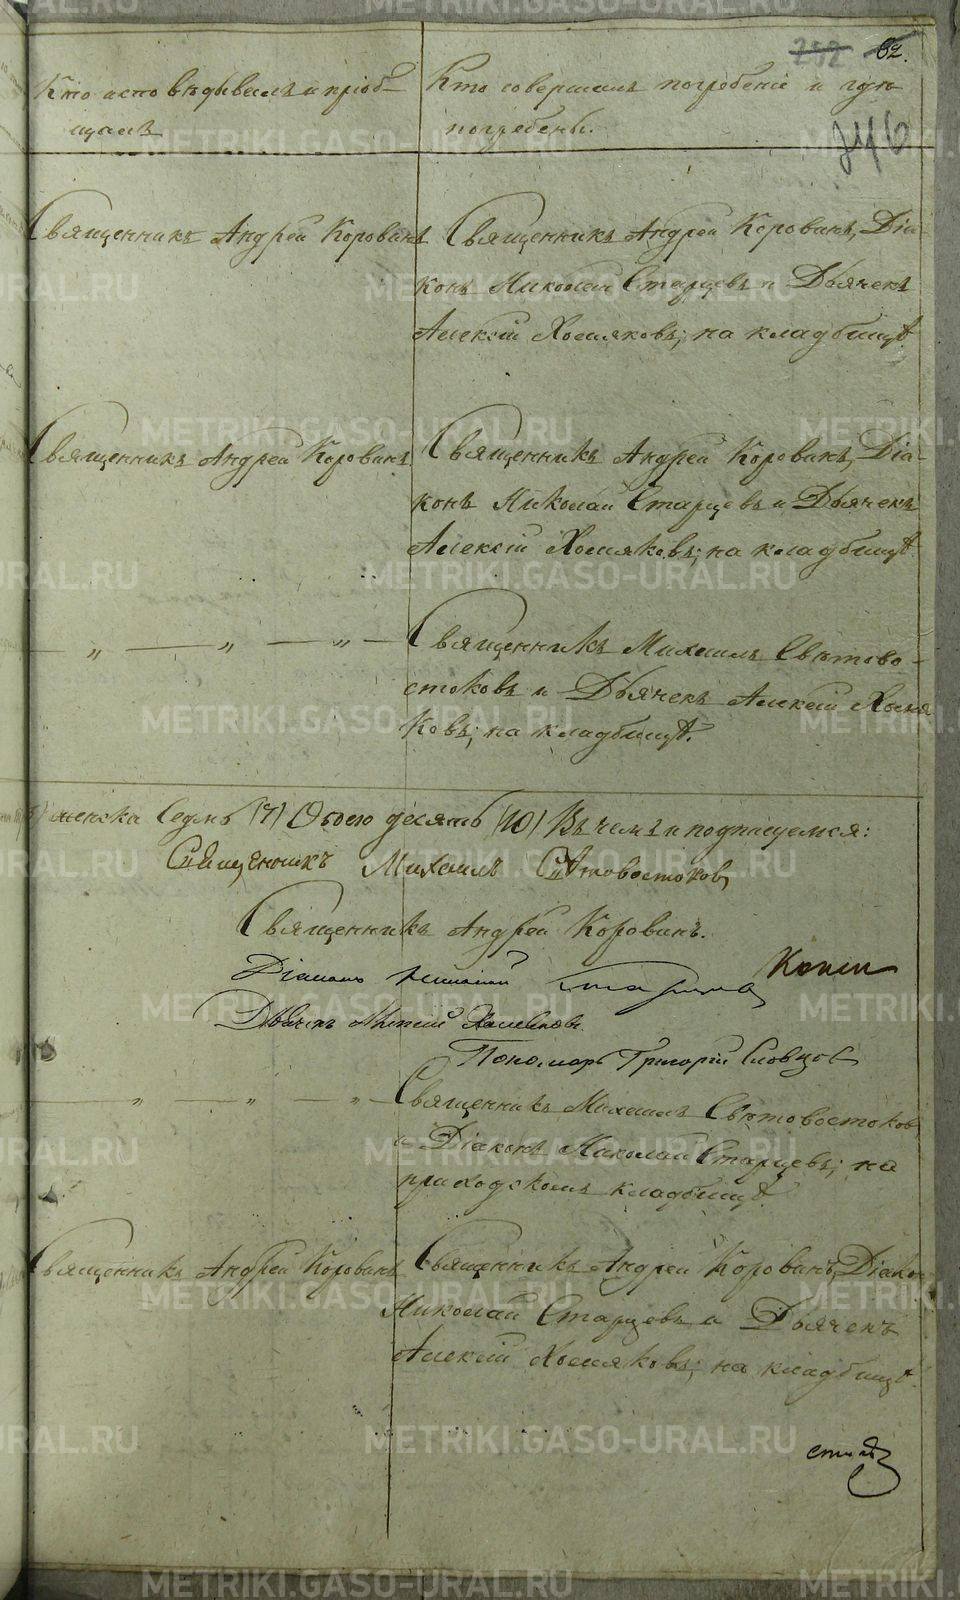 252 62.
246
Кто исповѣдывалъ и пріоб-
щалъ
Кто совершалъ погребеніе и гдѣ
погребены.
Священникъ Андрей Коровинъ
Священникъ Андрей Коровинъ, Діа-
конъ Николай Старцевъ и Дьячекъ
Алексій Хомяковъ; на кладбищѣ.
Священникъ Андрей Коровинъ
Священникъ Андрей Коровинъ, Діа-
конъ Николай Старцевъ и Дьячекъ
Алексій Хомяковъ; на кладбищѣ.
— „ — „ — „ —
Священникъ Михаилъ Свѣтово-
стоковъ и Дьячекъ Алексій Хомя
ковъ; на кладбищѣ.
женска Седмь (7) Обоего десять (10) Въ чемъ и подписуемся:
Священникъ Михаилъ Свѣтовостоковъ
Священникъ Андрей Коровинъ.
Діаконъ Николай Старцевъ
Дьячекъ Алексій Хомяковъ
Пономарь Григорій Словцов
— „ — „ — „ —
Священникъ Михаилъ Свѣтовостоковъ
и Діаконъ Николай Старцевъ; на
приходскомъ кладбищѣ.
Священникъ Андрей Коровинъ
Священникъ Андрей Коровинъ, Діакон
Николай Старцевъ и Дьячекъ
Алексій Хомяковъ; на кладбищѣ.
METRIKI.GASO-URAL.RU